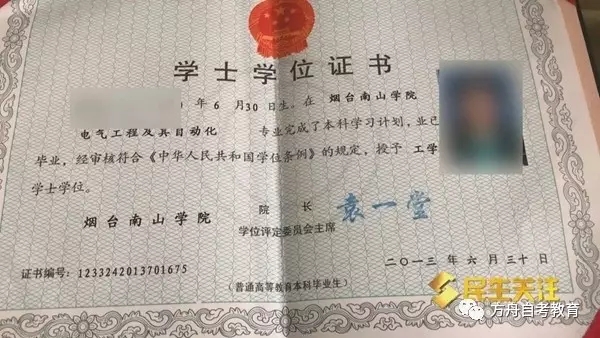 学士学位证书
年 6 月30 日生。在 烟台南山学院
电气工程及其自动化 专业完成了本科学习计划,业已
毕业,经审核符合《中华人民共和国学位条例》的规定,授予 工学
学士学位。
烟台南山学院 院 长 袁一堂
学位评定委员会主席
证书编号:1233242013701675
二〇一三 年 六 月 三十 日
(普通高等教育本科毕业生)
民生关注
方舟自考教育